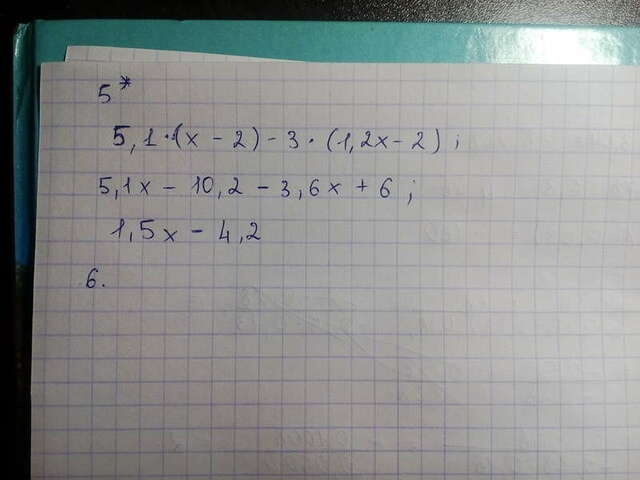 5*
5,1·(x - 2) - 3·(1,2x - 2);
5,1x - 10,2 - 3,6x + 6;
1,5x - 4,2
6.